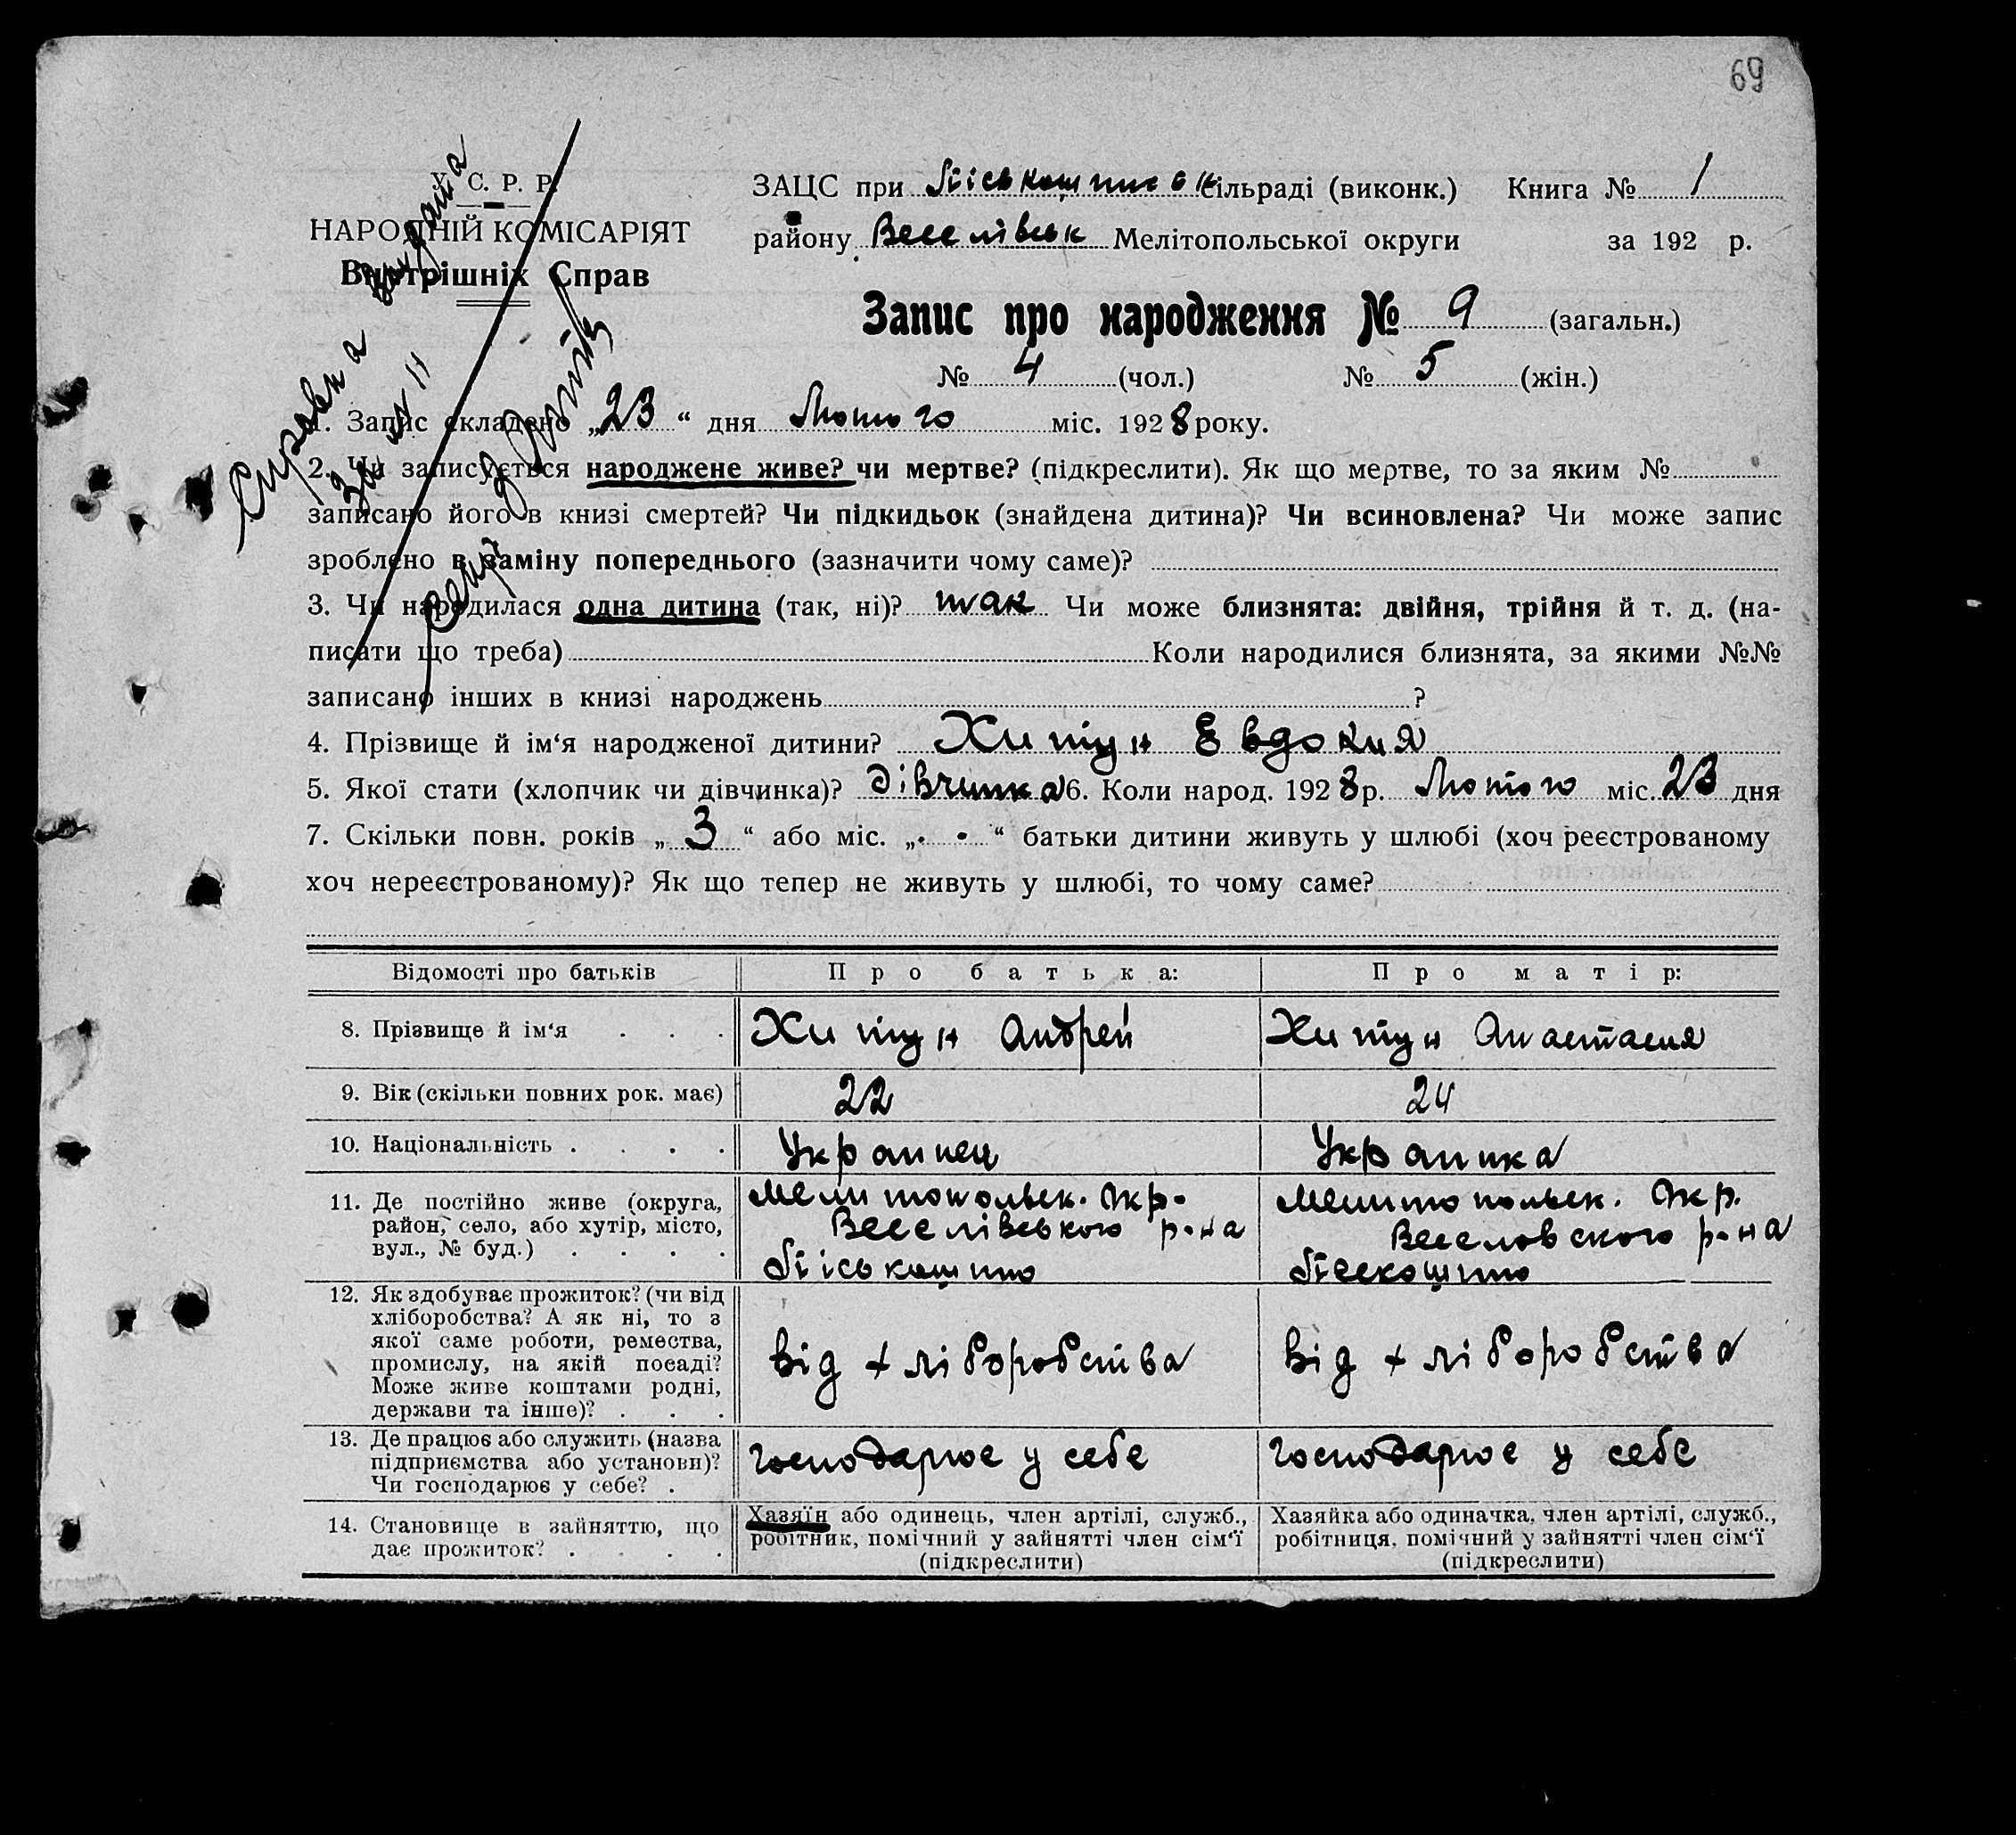 69
У. С. Р. Р.
НАРОДНІЙ КОМІСАРІЯТ
Внутрішніх Справ
Справка
за №11
ЗАЦС при сільраді (виконк.) Книга № 1
району Веселівськ Мелітопольської округи за 192 р.
Запис про народження № 9 (загальн.)
№ 4 (чол.) № 5 (жін.)
1. Запис складено „23“ дня Лютого міс. 1928 року.
2. Чи записується народжене живе? чи мертве? (підкреслити). Як що мертве, то за яким №
записано його в книзі смертей? Чи підкидьок (знайдена дитина)? Чи всиновлена? Чи може запис
зроблено в заміну попереднього (зазначити чому саме)?
3. Чи народилася одна дитина (так, ні)? так Чи може близнята: двійня, трійня й т. д. (на-
писати що треба) Коли народилися близнята, за якими №№
записано інших в книзі народжень ?
4. Прізвище й ім‘я народженої дитини? Хитун Евдокия
5. Якої стати (хлопчик чи дівчинка)? дівчинка 6. Коли народ. 1928 р. Лютого міс. 23 дня
7. Скільки повн. років „3“ або міс. „- -“ батьки дитини живуть у шлюбі (хоч реєстрованому
хоч нереєстрованому)? Як що тепер не живуть у шлюбі, то чому саме?
Відомості про батьків Про батька: Про матір:
8. Прізвище й ім‘я . . . Хитун Андрей Хитун Анастасия
9. Вік (скільки повних рок. має) 22 24
10. Національність . . . . Украинец Украинка
11. Де постійно живе (округа, Мелитопольск. Окр. Мелитопольск. Окр.
район, село, або хутір, місто, Веселівського р-на Веселовского р-на
вул., № буд.) . . . .
12. Як здобуває прожиток? (чи від
хліборобства? А як ні, то з
якої саме роботи, ремества,
промислу, на якій посаді? від хліборобства від хліборобства
Може живе коштами родні,
держави та інше)? . . .
13. Де працює або служить (назва
підприємства або установи)? господарює у себе господарює у себе
Чи господарює у себе? .
14. Становище в зайняттю, що Хазяїн або одинець, член артілі, служб., Хазяйка або одиначка, член артілі, служб.,
дає прожиток? . . . . робітник, помічний у зайнятті член сім‘ї робітниця, помічний у зайнятті член сім‘ї
(підкреслити) (підкреслити)